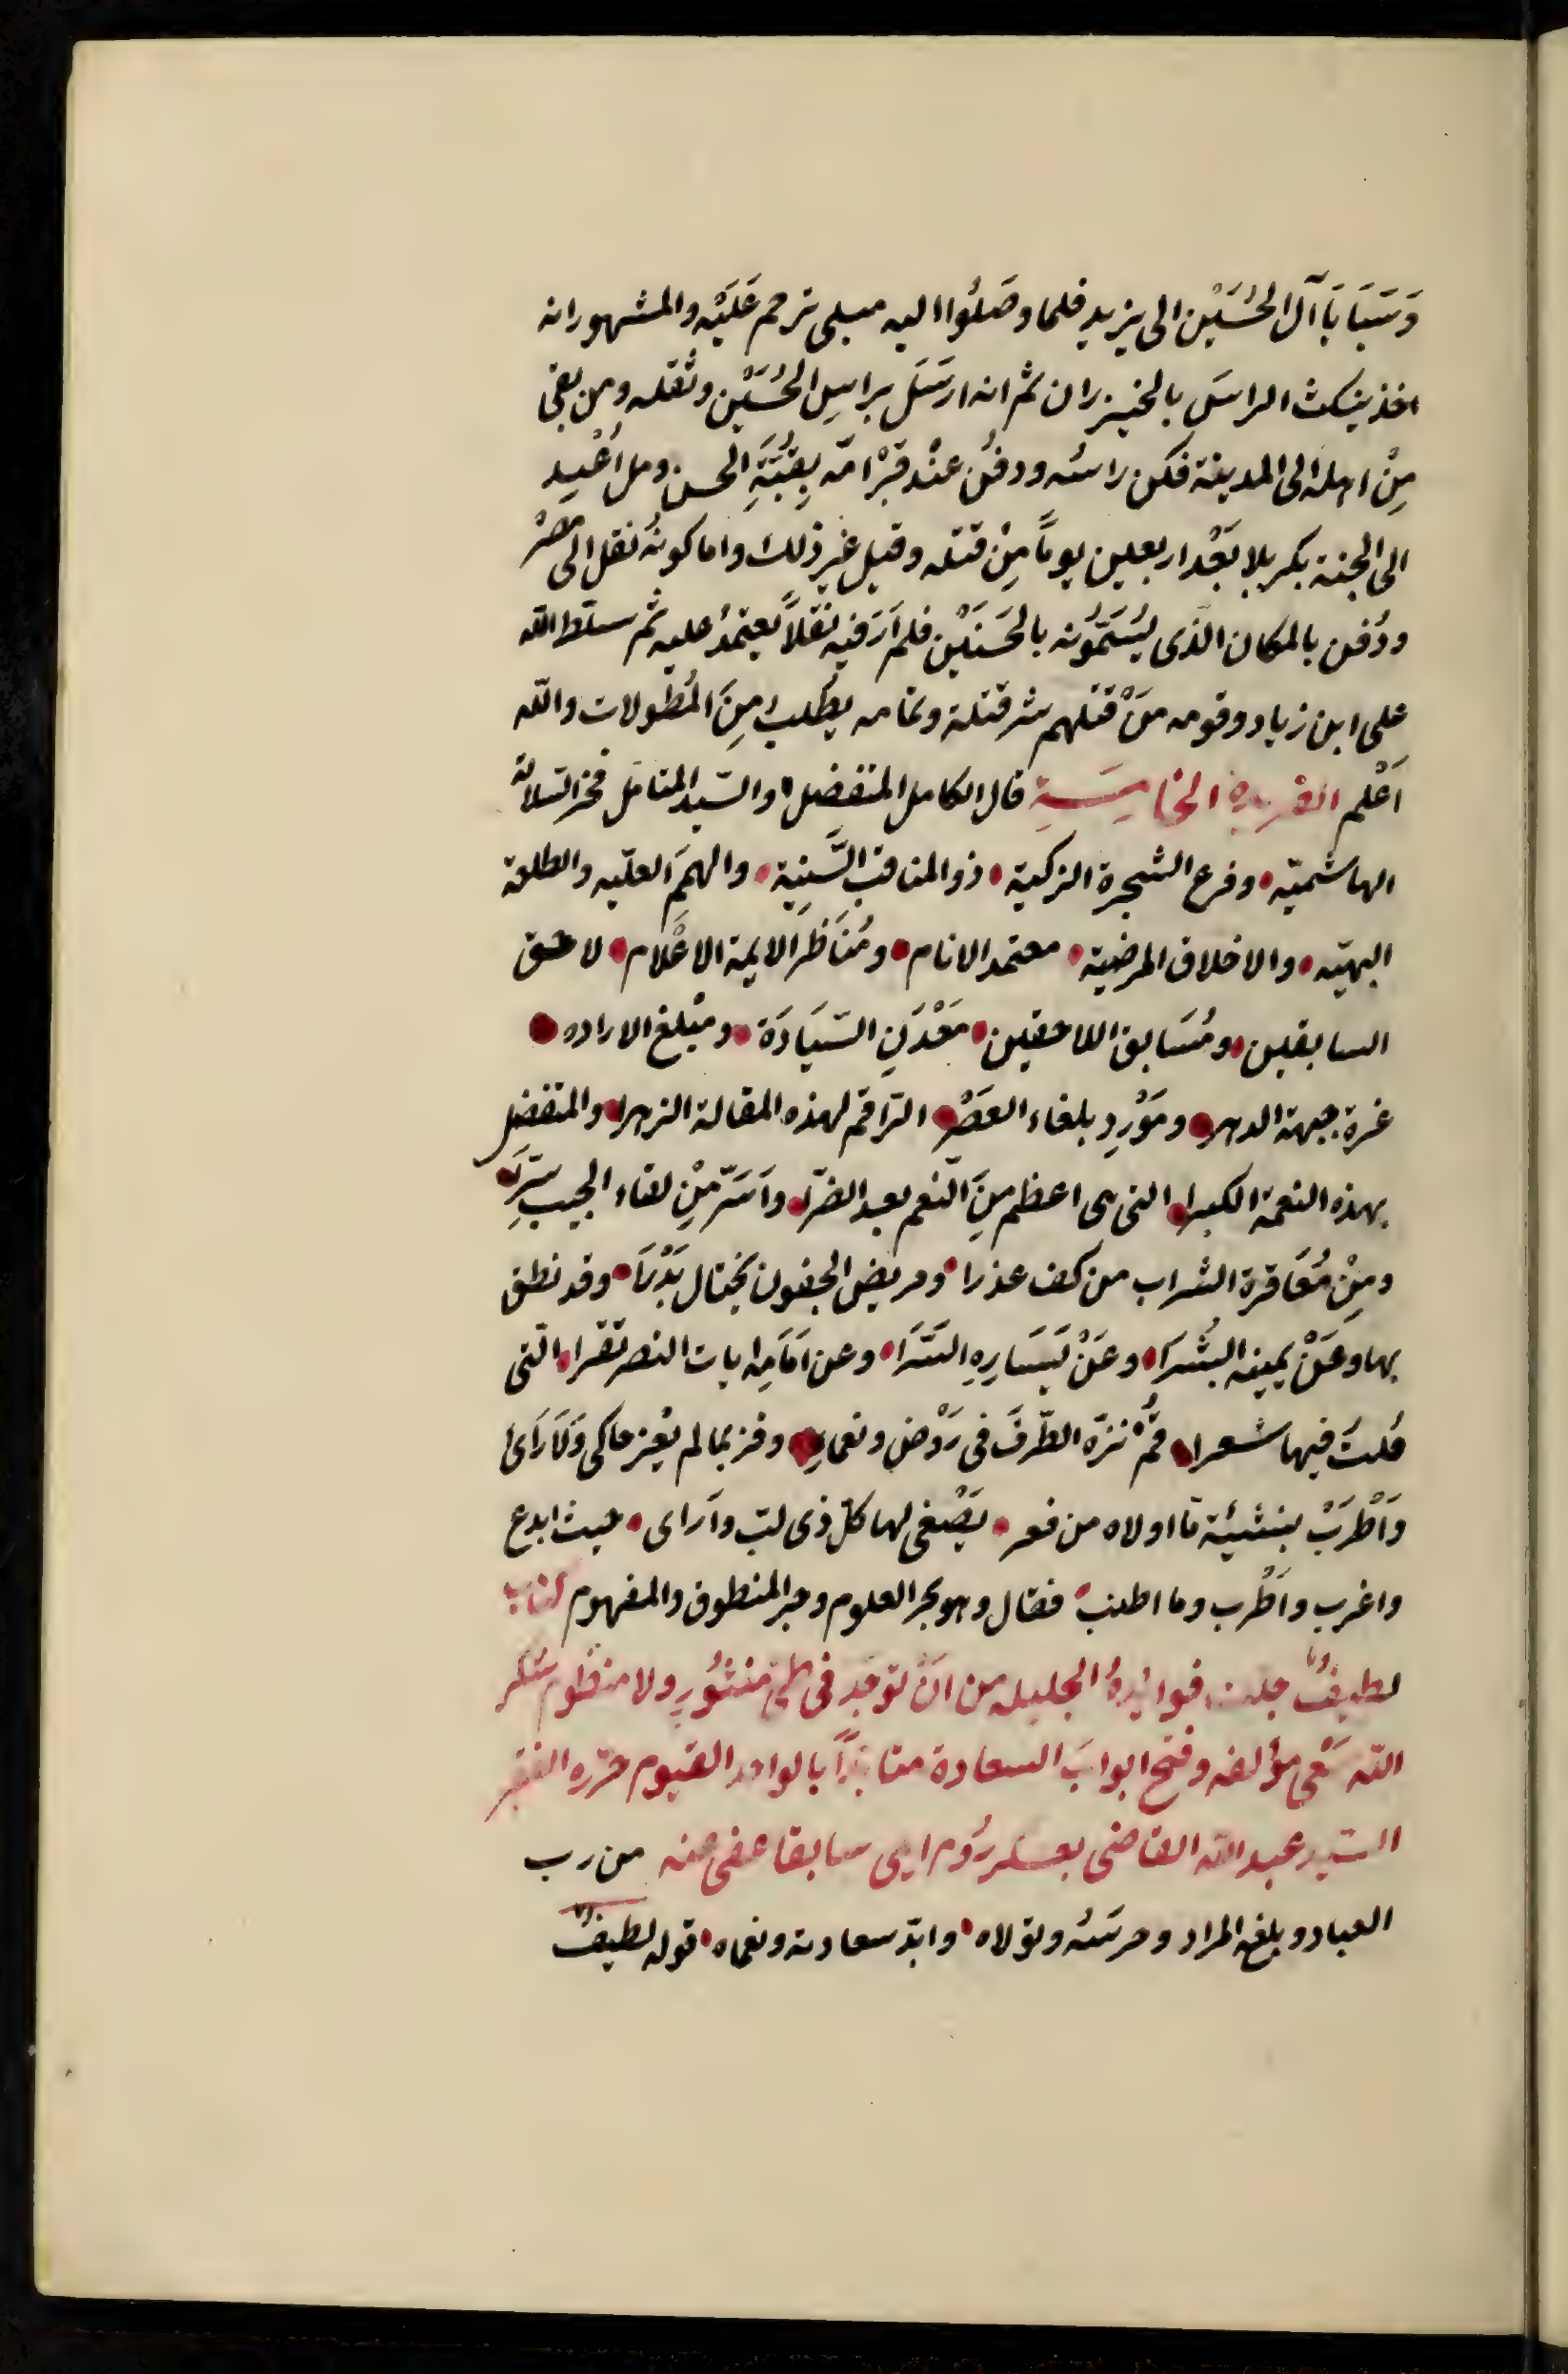 وَسَبَايَا آل الحُسَيْن الى يزيد فلما وصَلُوا اليه قيل ترحم عَلَيْه والمشهور انه
اخذ ينكث الراس بالخيزران ثم انه ارسَل براسِ الحُسَيْن وثقله ومن بقى
مِنْ اهله الى المدينة فكفن راسُه ودفُن عنْد قبْر امّه بِقبَّةِ الحسن وقيل اُعْيد
الى الجثة بكربلا بَعْد اربعين يوماً مِنْ قتله وقيل غير ذلك واما كونهُ نقل الى مصْر
ودُفن بالمكان الذّى يُسَمَّوُنه بالحَسَنَيْن فلم اَرَ فيه نقلاً يعتمدُ عليه ثم سلّط الله
على ابن زياد وقومه مَنْ قتلهم شر قتلة وتمامه يطلب مِنَ المُطولات والله
اَعْلم الفريدة الخامِسَةِ قال الكامل المتفضل والسّيد المتامل فخر السّلالة
الهاشميّه وفرع الشجرة الزكية ذو المناقب السَّنِيّة والهمَم العليّه والطلعة
البهيّه والاخلاق المرضية معتمد الانام ومُنَاظر الايمة الاعْلام لاحق
السابقين ومُسَابق اللاحقين مَعْدَن السّيَادَة ومبْلغ الاراده
غرة جبهة الدهر ومَوْرِد بلغاء العَصْر الرّاقم لهذه المقالة الزهرا والمتفضل
بهذه النعمة الكبرا التى هى اعظم مِنَ النّعم بعد الضرّا واَسَرّ مِنْ لقاء الحبيب سِرَّا
ومِنْ مُعَاقرة الشراب من كف عذرا ومريض الجفون يختال بَدْرَا وقد نطق
بها وعَنْ يمينه البُشْرَا وعَنْ يَسَارِهِ اليَسْرَا وعن اَمَامِه ايات النصر تقرا التّى
قلت فيها شعرا قُمْ نزّه الطّرفَ فى رَوْض ونعماىِ وفز بما لم يفز حاكى وَلَا رَاى
وَاطْرَبْ بنشيئة ما اولاه من فعر يَصْغى لها كلّ ذى لبّ واَراى حيث ابدع
واغرب واَطْرب وما اطنب فقال وهو بحر العلوم وحبر المنطوق والمفهوم كتابٌ
لطيفٌ جلت فوائِدهُ الجليله من انْ توجد فى منثُورٍ ولا منظوم شكر
الله سَعْى مؤلفه وفتح ابوابَ السعادة بالواحد القيوم حرّره الفقير
السّيد عبد الله القاضى بعسكر رُوم ايلى سابقا عفى عنه من رب
العباد وبلغه المراد وحرسَه وتولاه وابّد سعادته ونعماه قوله لطيفٌ